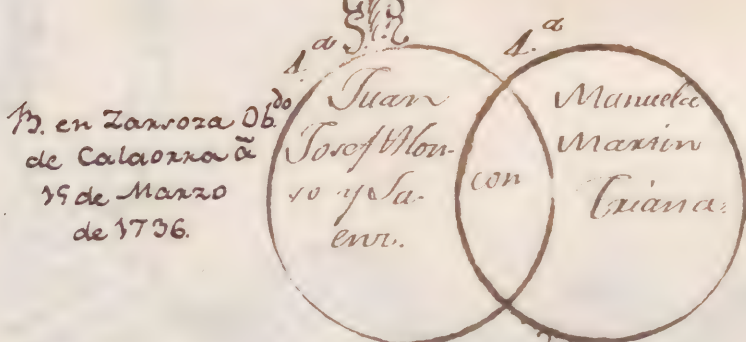 4.ª 4.ª
B. en Zarzoza Ob.do
de Calaorra ã
19 de Marzo
de 1736.
Juan
Josef Alon-
so y Sa-
enz.
con
Manuela
Martin
Triana.